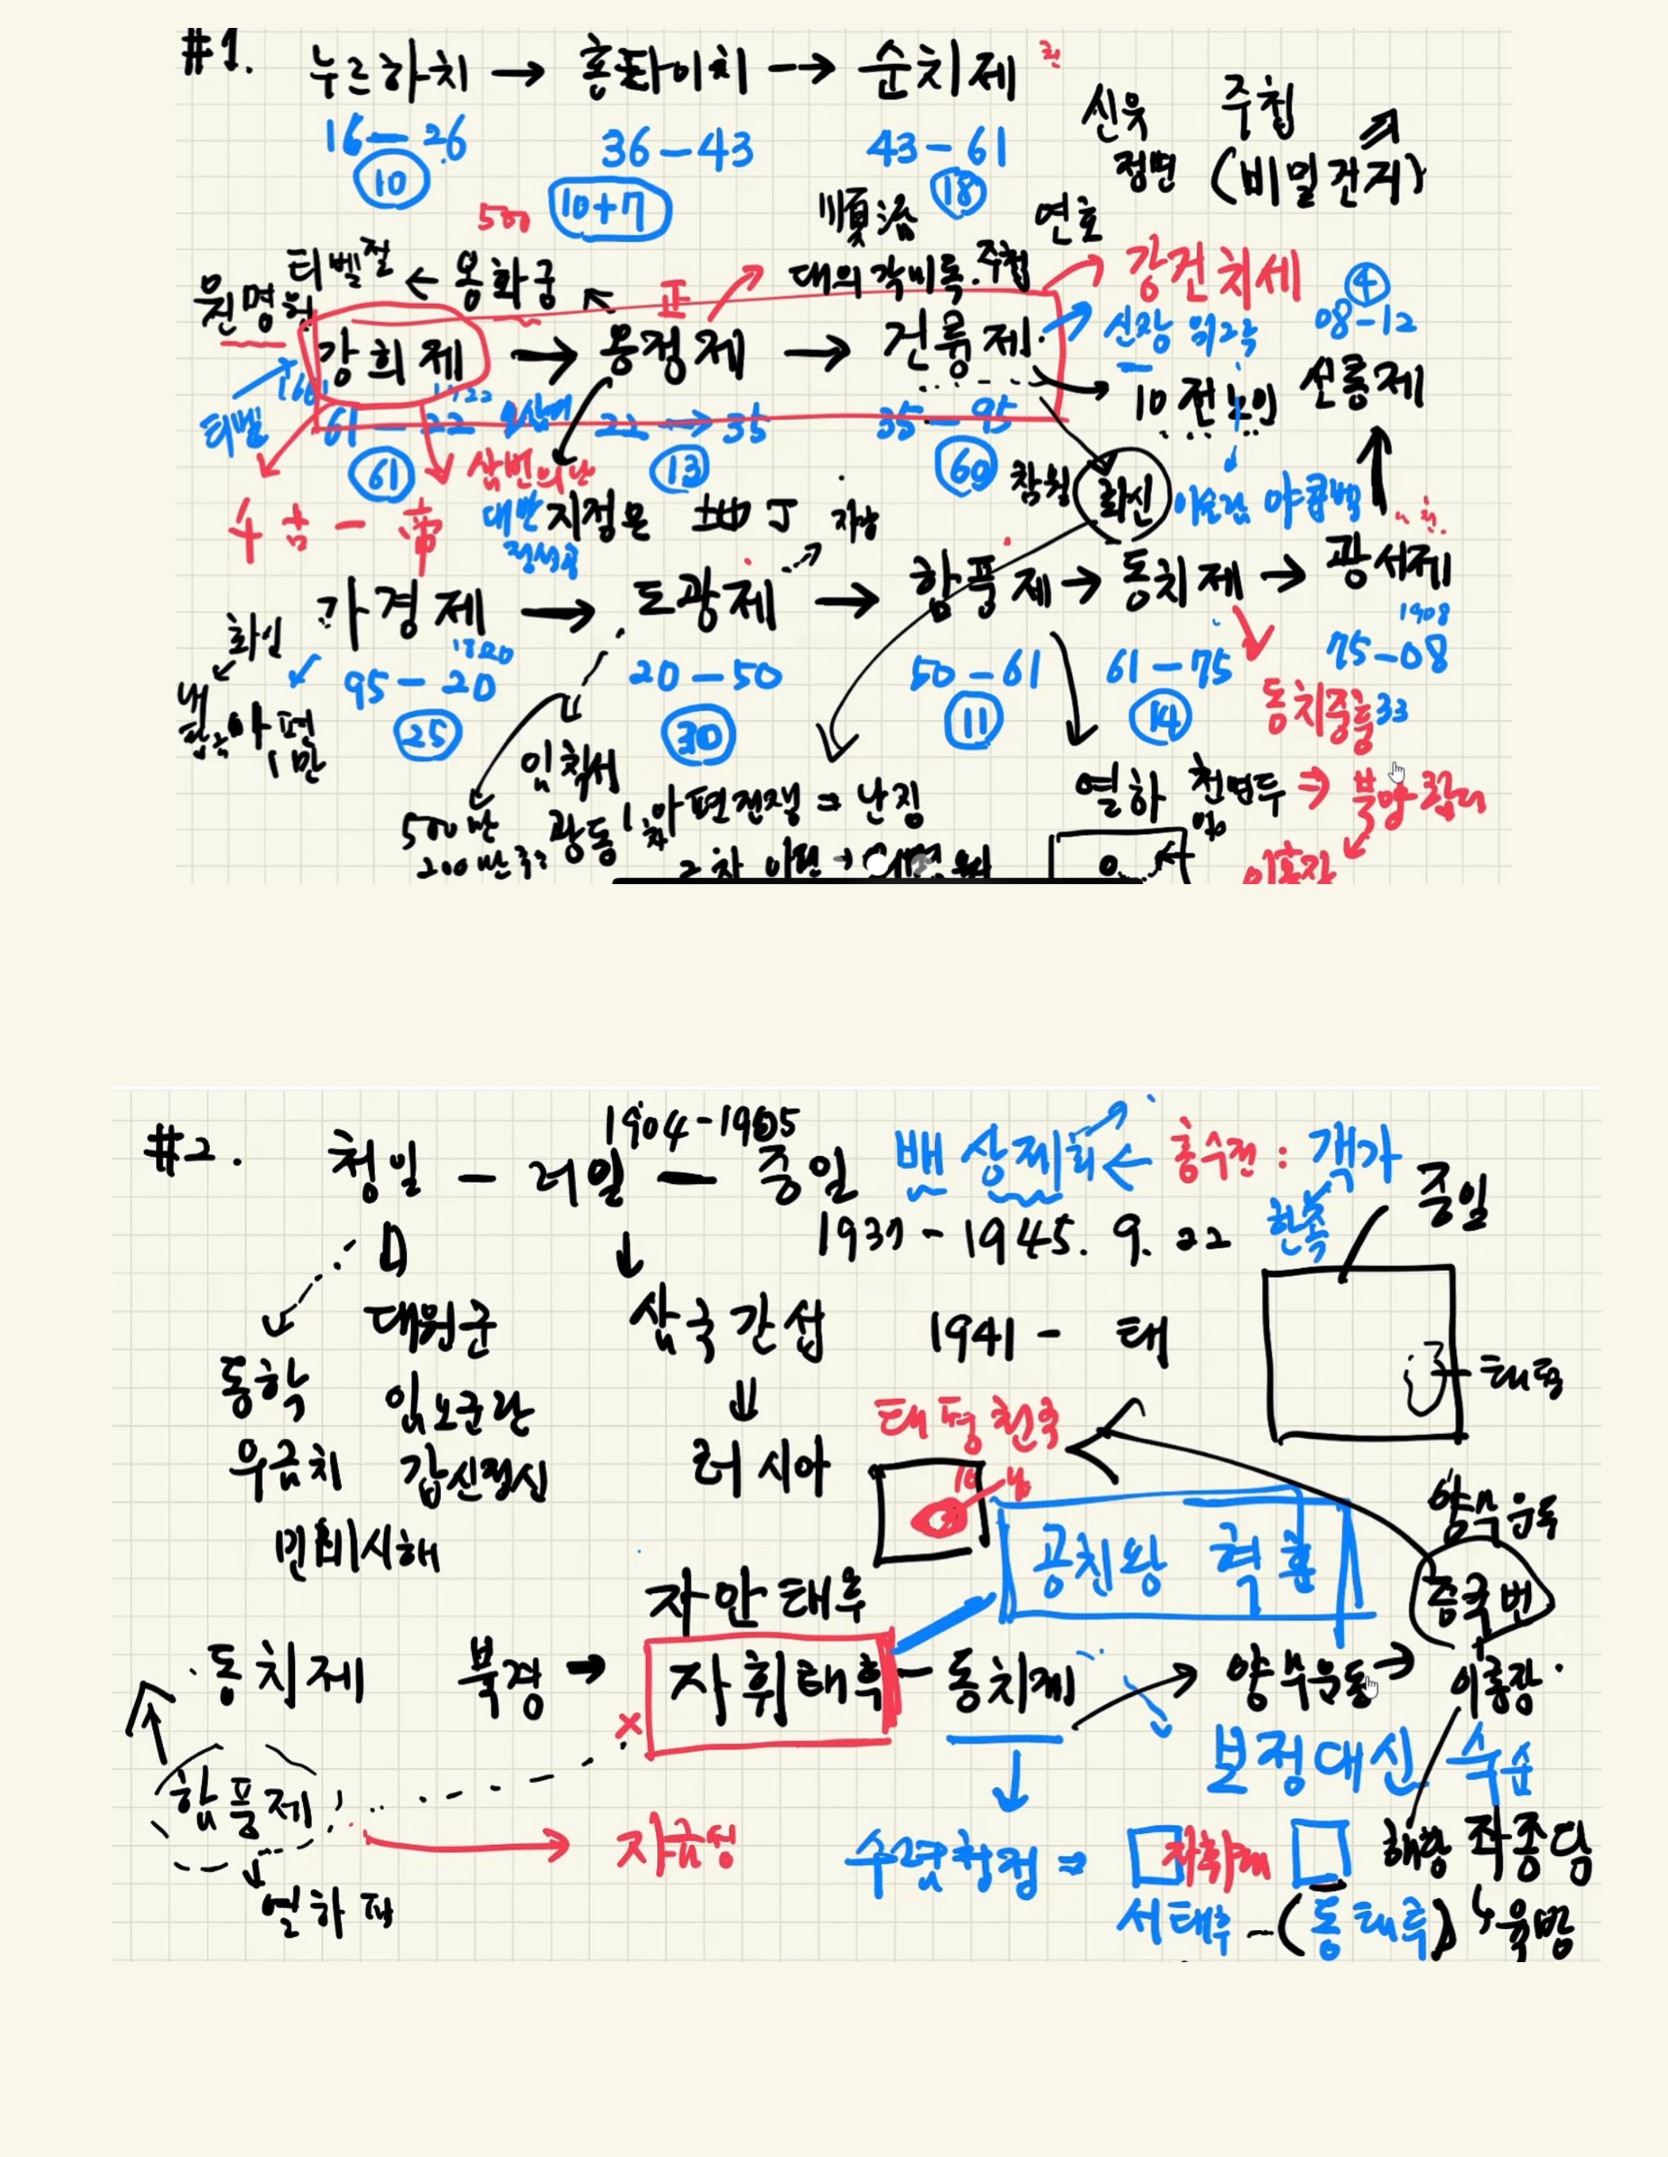 #1. 누르하치 → 홍타이치 → 순치제
16-26 36-43 43-61
10 10+7 18
신유 주접
정변 (비밀간지)
500 順治 연호
티벨절 ← 옹화궁 대의각미록.주접 강건치세
원명원 正 4
강희제 → 옹정제 → 건륭제 신장 위구르 08-12
10전노인 선통제
티벨 61-22 22→35 35-95
61 삼번의난 13 60 참월 화신
대만 지정은 地丁
가경제 → 도광제 → 함풍제 → 동치제 → 광서제
화신 1820 1908
95-20 20-50 50-61 61-75 75-08
25 30 11 14 동치중흥 33
아편 1만
임칙서
열하
500만 광동 1차 아편전쟁 = 난징
200만
이홍장
#2. 청일 - 러일 - 중일
1904-1905
배상제회 ← 홍수전: 객가
한족
중일
1937-1945. 9. 22
대원군 삼국간섭 1941- 태
동학 임오군란 태평
태평천국
우금치 갑신정신 러시아
민비시해
공친왕 혁흔
양무운동
자안태후 증국번
동치제 북경 → 자휘태후 - 동치제 → 양무운동 → 이홍장
보정대신 숙순
함풍제
자금성
수렴청정 ⇒ 해방 좌종당
열하 서태후 - (동태후)